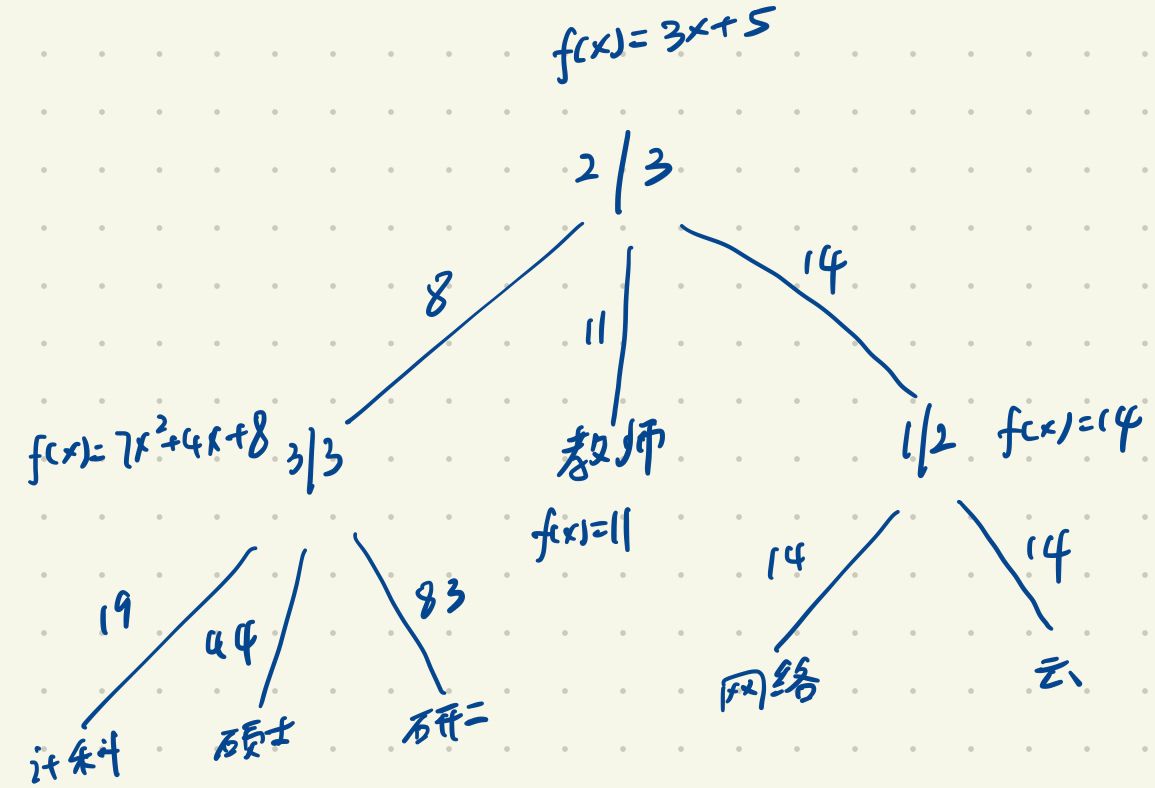 f(x)=3x+5
2/3
8
11
14
f(x)=7x²+4x+8
3/3
教师
1/2
f(x)=14
f(x)=11
19
44
83
14
14
计科
硕士
研二
网络
云